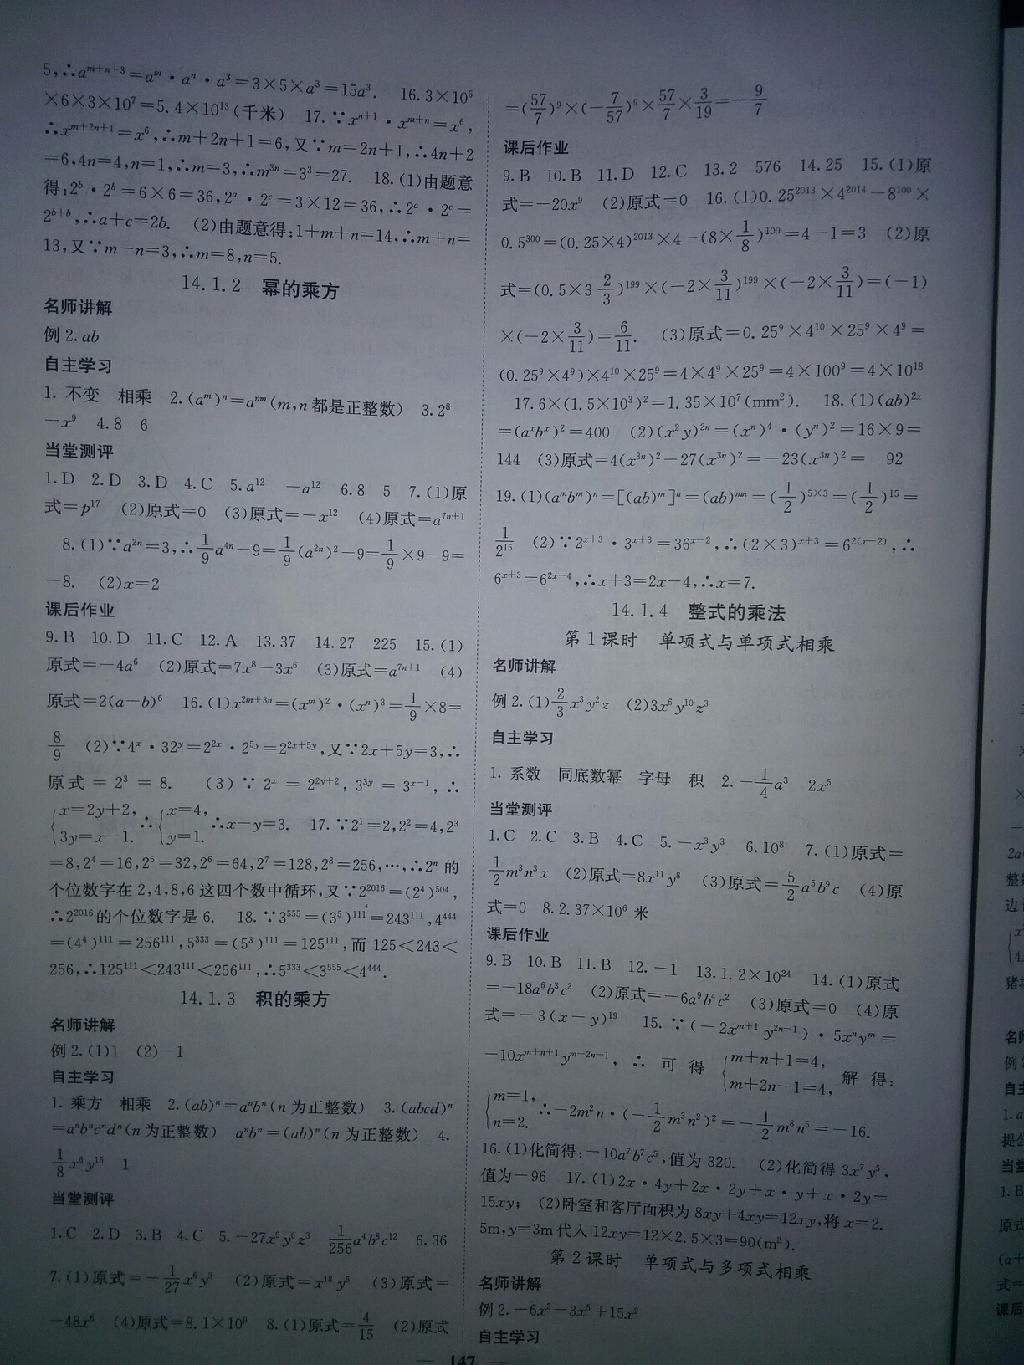 5,∴aᵐ⁺ⁿ⁺³=aᵐ·aⁿ·a³=3×5×a³=15a³. 16.3×10⁵
×6×3×10⁷=5.4×10¹³(千米) 17.∵xⁿ⁺¹·xᵐ⁺ⁿ=x⁶,
∴xᵐ⁺²ⁿ⁺¹=x⁶,∴m+2n+1=6,又∵m=2n+1,∴4n+2
=6,4n=4,n=1,∴m=3,∴m³ⁿ=3³=27. 18.(1)由题意
得:2ᵇ·2ᵇ=6×6=36,2ᵃ·2ᶜ=3×12=36,∴2ᵃ·2ᶜ=
2ᵇ⁺ᵇ,∴a+c=2b. (2)由题意得:1+m+n=14,∴m+n=
13,又∵m-n=3,∴m=8,n=5.
14.1.2 幂的乘方
名师讲解
例2.ab
自主学习
1. 不变 相乘 2.(aᵐ)ⁿ=aⁿᵐ(m,n都是正整数) 3.2⁸
-x⁹ 4.8 6
当堂测评
1.D 2.D 3.D 4.C 5.a¹² -a¹² 6.8 5 7.(1)原
式=p¹⁷ (2)原式=0 (3)原式=-x¹² (4)原式=a⁷ⁿ⁺¹
8.(1)∵a²ⁿ=3,∴1/9a⁴ⁿ-9=1/9(a²ⁿ)²-9=1/9×9-9=
-8. (2)x=2
课后作业
9.B 10.D 11.C 12.A 13.37 14.27 225 15.(1)
原式=-4a⁶ (2)原式=7x⁸-3x⁶ (3)原式=a⁷ⁿ⁺¹ (4)
原式=2(a-b)⁶ 16.(1)x²ᵐ⁺³ⁿ=(xᵐ)²·(xⁿ)³=1/9×8=
8/9 (2)∵4ˣ·32ʸ=2²ˣ·2⁵ʸ=2²ˣ⁺⁵ʸ,又∵2x+5y=3,∴
原式=2³=8. (3)∵2ˣ=2²ʸ⁺²,3³ʸ=3ˣ⁻¹,∴
{x=2y+2, 3y=x-1. ∴{x=4, y=1. ∴x-y=3. 17.∵2¹=2,2²=4,2³
=8,2⁴=16,2⁵=32,2⁶=64,2⁷=128,2⁸=256,…,∴2ⁿ的
个位数字在2,4,8,6这四个数中循环,又∵2²⁰¹⁶=(2⁴)⁵⁰⁴,
∴2²⁰¹⁶的个位数字是6. 18.∵3⁵⁵⁵=(3⁵)¹¹¹=243¹¹¹,4⁴⁴⁴
=(4⁴)¹¹¹=256¹¹¹,5³³³=(5³)¹¹¹=125¹¹¹,而125<243<
256,∴125¹¹¹<243¹¹¹<256¹¹¹,∴5³³³<3⁵⁵⁵<4⁴⁴⁴.
14.1.3 积的乘方
名师讲解
例2.(1)1 (2)-1
自主学习
1. 乘方 相乘 2.(ab)ⁿ=aⁿbⁿ(n为正整数) 3.(abcd)ⁿ
=aⁿbⁿcⁿdⁿ(n为正整数) aⁿbⁿ=(ab)ⁿ(n为正整数) 4.
1/8x⁶y¹⁵ 1
当堂测评
1.C 2.D 3.B 4.C 5.-27x⁶y⁶z³ 1/256a⁴b⁸c¹² 6.36
7.(1)原式=-1/27x⁶y³ (2)原式=x¹⁸y⁶ (3)原式=
-48x⁶ (4)原式=8.1×10⁹ 8.(1)原式=4/15 (2)原式
=(57/7)⁹×(-7/57)⁹×57/7×3/19=-9/7
课后作业
9.B 10.B 11.D 12.C 13.2 576 14.25 15.(1)原
式=-20x⁹ (2)原式=0 16.(1)0.25²⁰¹³×4²⁰¹⁴-8¹⁰⁰×
0.5³⁰⁰=(0.25×4)²⁰¹³×4-(8×1/8)¹⁰⁰=4-1=3 (2)原
式=(0.5×3 2/3)¹⁹⁹×(-2×3/11)¹⁹⁹×(-2×3/11)=(-1)
×(-2×3/11)=6/11. (3)原式=0.25⁹×4¹⁰×25⁹×4⁹=
(0.25⁹×4⁹)×4¹⁰×25⁹=4×4⁹×25⁹=4×100⁹=4×10¹⁸
17.6×(1.5×10³)²=1.35×10⁷(mm²). 18.(1)(ab)²ˣ
=(aˣbˣ)²=400 (2)(x²y)²ⁿ=(xⁿ)⁴·(yⁿ)²=16×9=
144 (3)原式=4(x³ⁿ)²-27(x³ⁿ)²=-23(x³ⁿ)²=-92
19.(1)(aⁿbᵐ)ⁿ=[(ab)ᵐ]ⁿ=(ab)ᵐⁿ=(1/2)⁵ˣ³=(1/2)¹⁵=
1/2¹⁵ (2)∵2ˣ⁺³·3ˣ⁺³=36ˣ⁻²,∴(2×3)ˣ⁺³=6²⁽ˣ⁻²⁾,∴
6ˣ⁺³=6²ˣ⁻⁴,∴x+3=2x-4,∴x=7.
14.1.4 整式的乘法
第1课时 单项式与单项式相乘
名师讲解
例2.(1)2/3x³y²z (2)3x⁶y¹⁰z³
自主学习
1. 系数 同底数幂 字母 积 2.-1/4a³ 2x⁵
当堂测评
1.C 2.C 3.B 4.C 5.-x³y³ 6.10⁸ 7.(1)原式=
1/2m³n³x (2)原式=8x¹¹y⁸ (3)原式=5/2a⁵b⁹c (4)原
式=0 8.2.37×10⁶米
课后作业
9.B 10.B 11.B 12.-1 13.1.2×10²⁴ 14.(1)原式
=-18a⁶b³c² (2)原式=-6a⁹b⁶c² (3)原式=0 (4)原
式=-3(x-y)¹⁹ 15.∵(-2xᵐ⁺¹y²ⁿ⁻¹)·5xⁿyᵐ=
-10xᵐ⁺ⁿ⁺¹yᵐ⁺²ⁿ⁻¹,∴可得{m+n+1=4, m+2n-1=4, 解得:
{m=1, n=2. ∴-2m²n·(-1/2m³n²)²=-1/2m⁸n⁵=-16.
16.(1)化简得:-10a⁷b⁷c⁵,值为320. (2)化简得3x⁷y⁵,
值为-96 17.(1)2x·4y+2x·2y+x·y+x·2y=
15xy; (2)卧室和客厅面积为8xy+4xy=12xy,将x=2.
5m,y=3m代入12xy=12×2.5×3=90(m²).
第2课时 单项式与多项式相乘
名师讲解
例2.-6x⁵-3x³+15x²
自主学习
147